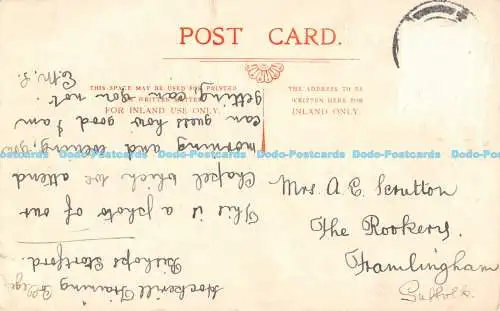 POST CARD.
THIS SPACE MAY BE USED FOR PRINTED
OR WRITTEN MATTER
FOR INLAND USE ONLY.
THE ADDRESS TO BE
WRITTEN HERE FOR
INLAND ONLY.
Mrs. A. E. Scrutton
The Rookery,
Framlingham
Suffolk.
Hockerill Training College
Bishops Stortford.
This is a photo of our
Chapel which we attend
morning and evening, you
can guess how good I am
getting, can you not.
E. M. S.
Dodo-Postcards Dodo-Postcards Dodo-Postcards Dodo-Postcards